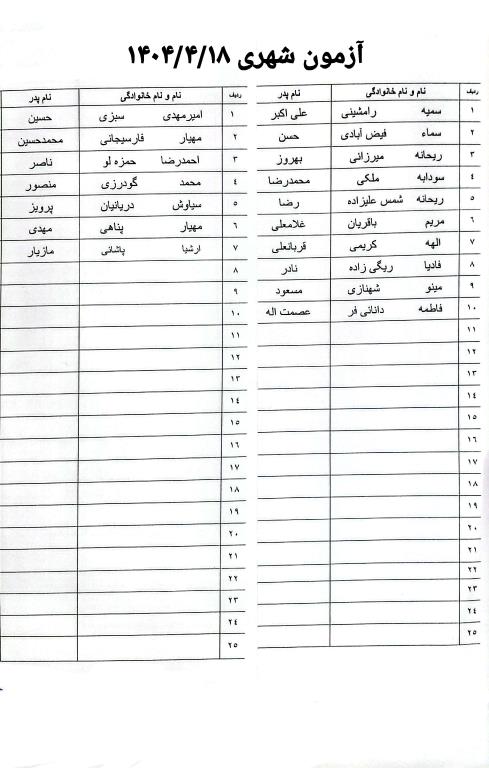 آزمون شهری ۱۴۰۴/۴/۱۸
ردیف نام و نام خانوادگی نام پدر
۱ سمیه رامشینی علی اکبر
۲ سماء فیض آبادی حسن
۳ ریحانه میرزائی بهروز
۴ سودابه ملکی محمدرضا
۵ ریحانه شمس علیزاده رضا
۶ مریم باقریان غلامعلی
۷ الهه کریمی قربانعلی
۸ فادیا ریگی زاده نادر
۹ مینو شهنازی مسعود
۱۰ فاطمه دانائی فر عصمت اله
۱۱
۱۲
۱۳
۱٤
۱۵
۱٦
۱۷
۱۸
۱۹
۲۰
۲۱
۲۲
۲۳
۲٤
۲۵
ردیف نام و نام خانوادگی نام پدر
۱ امیرمهدی سبزی حسین
۲ مهیار فارسیجانی محمدحسین
۳ احمدرضا حمزه لو ناصر
۴ محمد گودرزی منصور
۵ سیاوش دریانیان پرویز
۶ مهیار پناهی مهدی
۷ ارشیا پاشائی مازیار
۸
۹
۱۰
۱۱
۱۲
۱۳
۱٤
۱۵
۱٦
۱۷
۱۸
۱۹
۲۰
۲۱
۲۲
۲۳
۲٤
۲۵